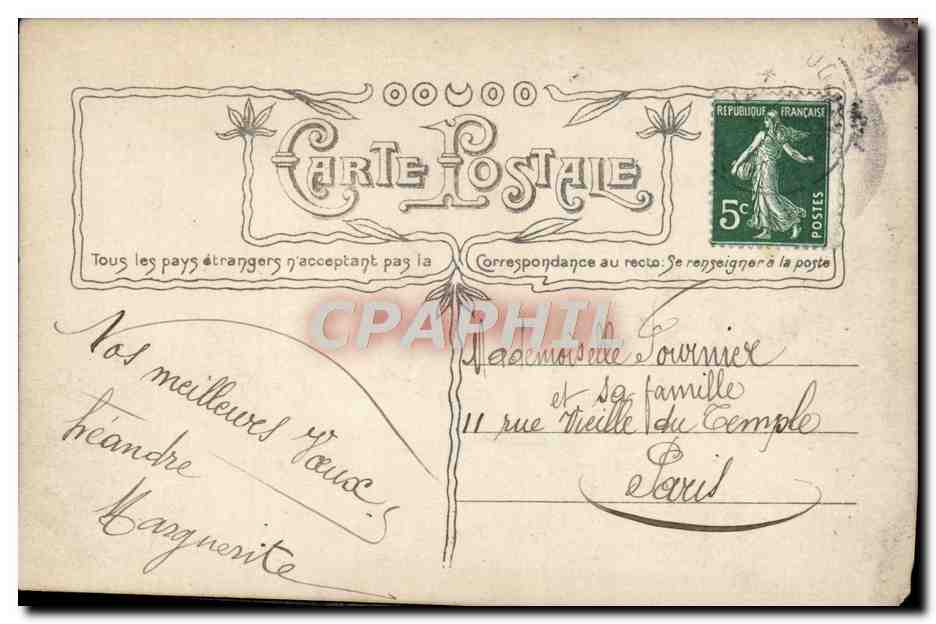 CARTE POSTALE
Tous les pays étrangers n'acceptant pas la Correspondance au recto: Se renseigner à la poste
REPUBLIQUE FRANÇAISE
5c
POSTES
CPAPHIL
Vos meilleurs Voeux
Léandre
Marguerite
Mademoiselle Fournier
et sa famille
11 rue Vieille du Temple
Paris